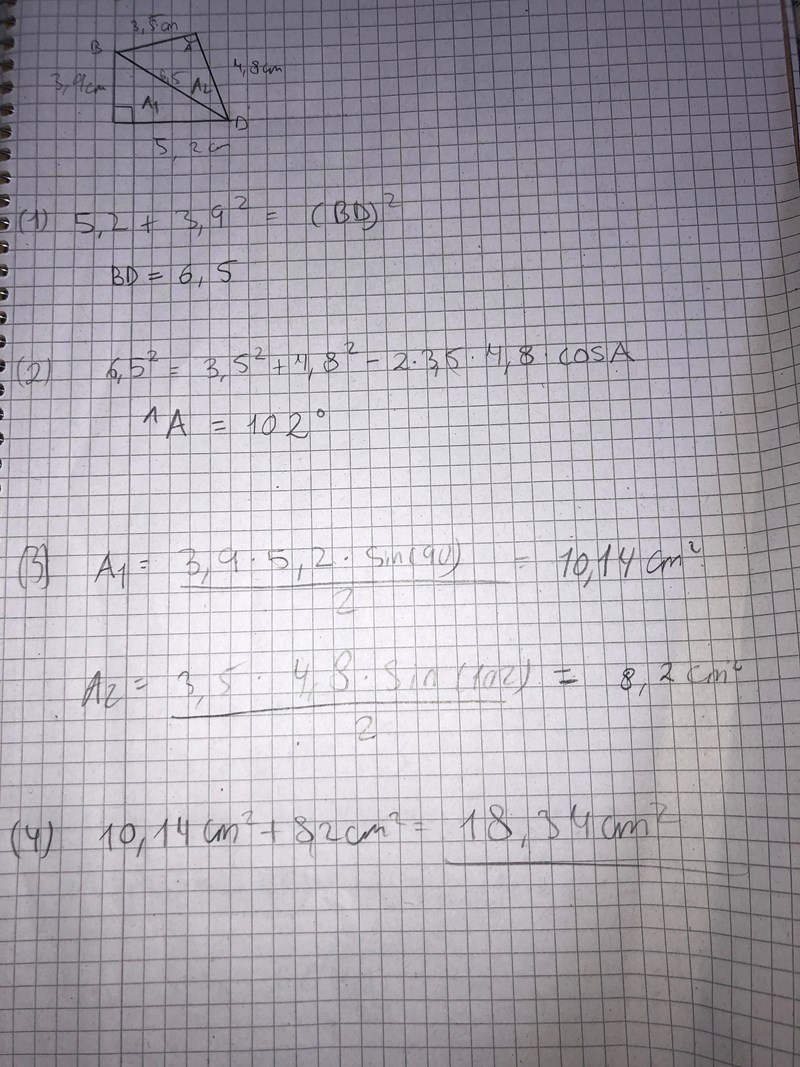 3,5cm
B
A
3,9cm
6,5
A2
4,8cm
A1
D
5,2cm
(1) 5,2 + 3,9² = (BD)²
BD = 6,5
(2) 6,5² = 3,5² + 4,8² - 2·3,5·4,8 cosA
^A = 102°
(3) A₁ = 3,9·5,2·sin(90) / 2 = 10,14 cm²
A₂ = 3,5·4,8·sin(102) / 2 = 8,2 cm²
(4) 10,14 cm² + 8,2 cm² = 18,34 cm²